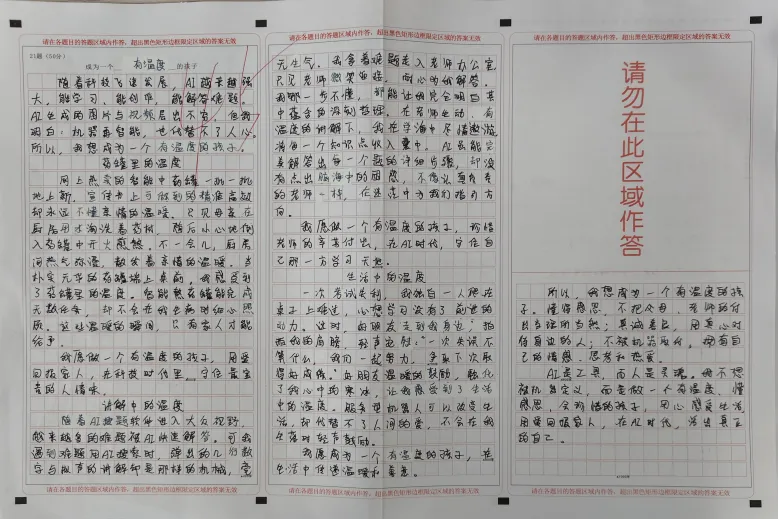 请在各题目的答题区域内作答，超出黑色矩形边框限定区域的答案无效
21题（50分）
成为一个 有温度 的孩子
随着科技飞速发展，AI越来越强
大，能学习、能创作，能解答难题。
AI生成的图片与视频层出不穷。但我
明白：机器再智能，也代替不了人心。
所以，我想成为一个有温度的孩子。
药罐里的温度
网上热卖的智能中药罐一批一批
地上新，宣传书上可做到的精准高效
却永远不懂亲情的温暖。只见母亲在
厨房用水淘洗着药材，随后小心地倒
入药罐中开火煎熬。不一会儿，厨房
间热气弥漫，散发着亲情的温暖。当
朴实无华的药罐端上桌前，我感受到
了药罐里的温度。智能熬药罐能完成
无数任务，却不会在我生病时细心照
质。这些温暖的瞬间，只有家人才能
给予。
我愿做一个有温度的孩子，用爱
回报家人，在科技时代里，守住最宝
贵的人情味。
讲解中的温度
随着AI搜题软件进入大众视野，
越来越多的难题被AI快速解答。可我
遇到难题用AI搜索时，弹出的几行数
字与低声的讲解却是那样的机械，毫
请在各题目的答题区域内作答，超出黑色矩形边框限定区域的答案无效
请在各题目的答题区域内作答，超出黑色矩形边框限定区域的答案无效
无生气。我拿着难题走入老师办公室，
只见老师微笑面容，耐心为我解答。
因哪一步不懂，都能让我完全明白其
中蕴含的深刻哲理。在老师生动、有
温度的讲解下，我在学海中尽情遨游，
将每一个知识点收入囊中。AI虽能完
美解答出每一个题的详细步骤，却没
有点出脑海中的困惑，不像以有丹寿
的老师一样，在迷途中为我们指引方
向。
我愿做一个有温度的孩子，珍惜
老师的辛苦付出，在AI时代，守住自
己那一方学习天地。
生活中的温度
一次考试失利，我独自一人爬在
桌子上难过，心想学习没有了前进的
动力。这时，好朋友走到我身边，拍
拍我的肩膀，轻声说过：“一次失误不
算什么，我们一起努力，争取下次取
得好成绩。”好朋友温暖的鼓励，融化
了我心中的寒冰，让我感受到了生活
中的温度。服务型机器人可以改变生
活，却代替不了人间的爱，不会在我
失落时轻声鼓励。
我愿成为一个有温度的孩子，在
生活中传递温暖和善意。
请在各题目的答题区域内作答，超出黑色矩形边框限定区域的答案无效
请在各题目的答题区域内作答，超出黑色矩形边框限定区域的答案无效
请勿在此区域作答
所以，我想成为一个有温度的孩
子。懂得感恩，不把父母、老师的付
出当理所当然；真诚善良，用真心对
待身边的人；不被机器取代，拥有自
己的情感、思考和热爱。
AI是工具，而人是灵魂。我不想
被机器定义，而是做一个有温度、懂
感恩、会珍惜的孩子，用心感受生活，
用爱回报家人，在AI时代，活出真正
的自己。
请在各题目的答题区域内作答，超出黑色矩形边框限定区域的答案无效